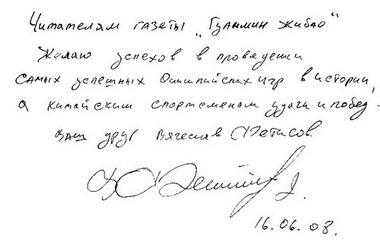 Читателям газеты „Гуанмин Жибао"
Желаю успехов в проведении
самых успешных Олимпийских игр в истории,
а китайским спортсменам удачи и побед.
Ваш друг Вячеслав Фетисов.
16.06.08.